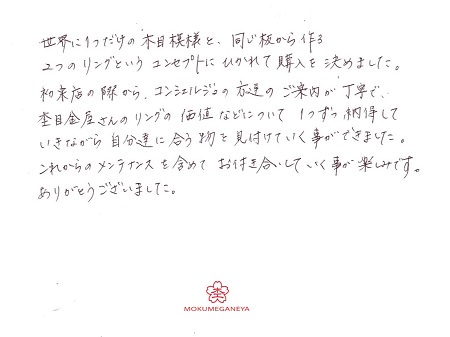 世界に1つだけの木目模様と、同じ板から作る
2つのリングという コンセプトに ひかれて購入を決めました。
初来店の際から、コンシェルジュの方達の ご案内が丁寧で、
杢目金屋さんのリングの価値などについて 1つずつ納得して
いきながら 自分達に合う物を見付けていく事ができました。
これからのメンテナンスを含めて お付き合いしていく事が楽しみです。
ありがとうございました。
杢
MOKUMEGANEYA